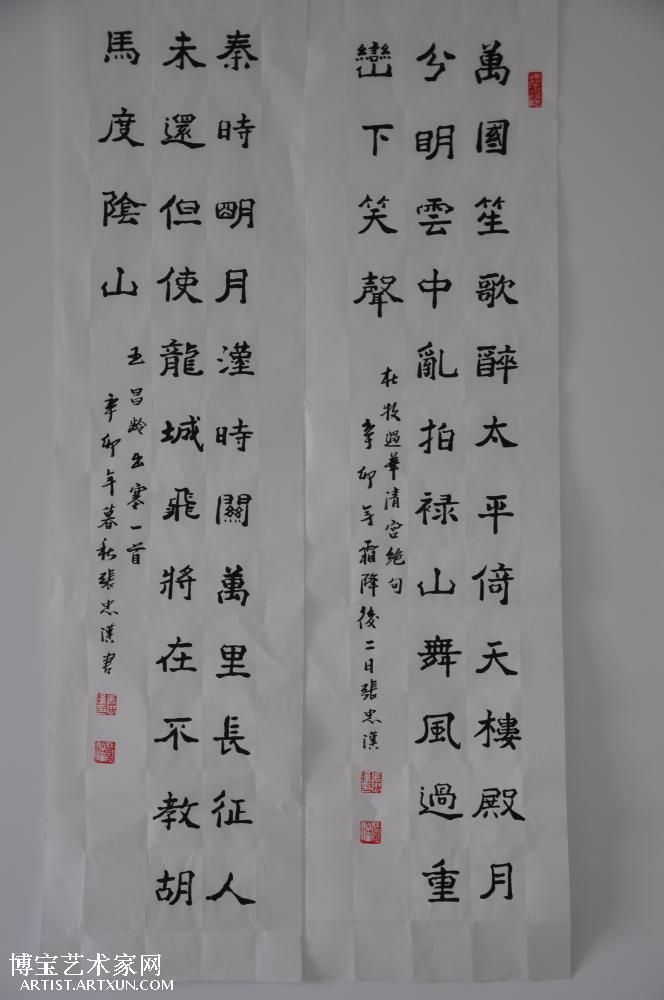 萬國笙歌醉太平倚天樓殿月
分明雲中亂拍祿山舞風過重
巒下笑聲
杜牧過華清宮絶句
辛卯年霜降後二日張忠漢
秦時明月漢時關萬里長征人
未還但使龍城飛將在不教胡
馬度陰山
王昌齡出塞一首
辛卯年暮秋張忠漢書
博宝艺术家网
ARTIST.ARTXUN.COM